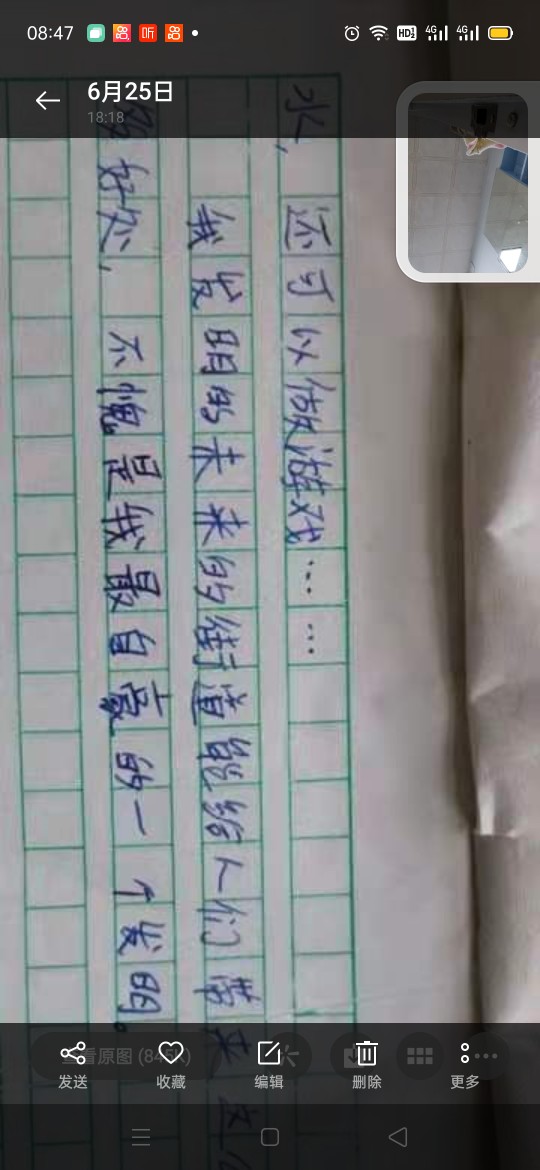 08:47
听
HD
4G
4G
6月25日
18:18
水，还可以做游戏……
我发明的未来的街道能给人们带来这
多好处，不愧是我最自豪的一个发明。
发送
收藏
编辑
删除
更多